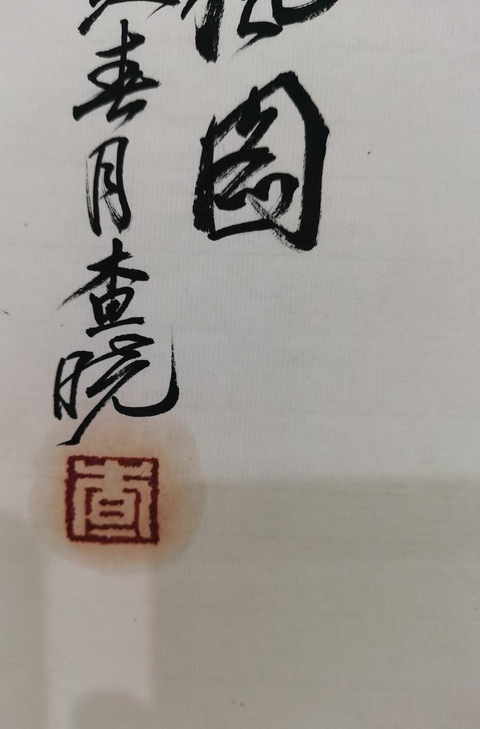 園
春月查晓
查